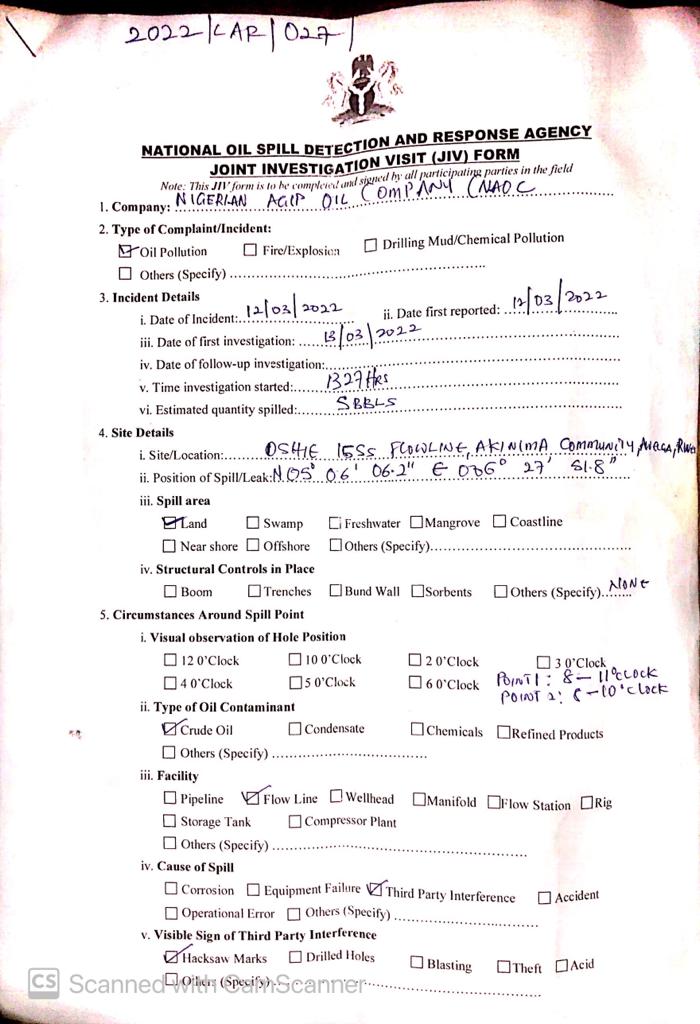 2022/LAR/027/
NATIONAL OIL SPILL DETECTION AND RESPONSE AGENCY
JOINT INVESTIGATION VISIT (JIV) FORM
Note: This JIV form is to be completed and signed by all participating parties in the field
1. Company: NIGERIAN AGIP OIL COMPANY (NAOC
2. Type of Complaint/Incident:
☑ Oil Pollution ☐ Fire/Explosion ☐ Drilling Mud/Chemical Pollution
☐ Others (Specify) ..........
3. Incident Details
i. Date of Incident: 12/03/2022 ii. Date first reported: 12/03/2022
iii. Date of first investigation: 13/03/2022
iv. Date of follow-up investigation:..........
v. Time investigation started: 1327Hrs
vi. Estimated quantity spilled: 5BBLS
4. Site Details
i. Site/Location: OSHIE 15SS FLOWLINE, AKINIMA COMMUNITY,
ii. Position of Spill/Leak: N05° 06' 06.2" E 006° 27' 51.8"
iii. Spill area
☑ Land ☐ Swamp ☐ Freshwater ☐ Mangrove ☐ Coastline
☐ Near shore ☐ Offshore ☐ Others (Specify)..........
iv. Structural Controls in Place
☐ Boom ☐ Trenches ☐ Bund Wall ☐ Sorbents ☐ Others (Specify)..NONE
5. Circumstances Around Spill Point
i. Visual observation of Hole Position
☐ 12 0'Clock ☐ 10 0'Clock ☐ 2 0'Clock ☐ 3 0'Clock
☐ 4 0'Clock ☐ 5 0'Clock ☐ 6 0'Clock POINT 1: 8-11O'CLOCK
POINT 2: -10'CLOCK
ii. Type of Oil Contaminant
☑ Crude Oil ☐ Condensate ☐ Chemicals ☐ Refined Products
☐ Others (Specify) ..........
iii. Facility
☐ Pipeline ☑ Flow Line ☐ Wellhead ☐ Manifold ☐ Flow Station ☐ Rig
☐ Storage Tank ☐ Compressor Plant
☐ Others (Specify) ..........
iv. Cause of Spill
☐ Corrosion ☐ Equipment Failure ☑ Third Party Interference ☐ Accident
☐ Operational Error ☐ Others (Specify) ..........
v. Visible Sign of Third Party Interference
☑ Hacksaw Marks ☐ Drilled Holes ☐ Blasting ☐ Theft ☐ Acid
☐ Others (Specify)..........
CS Scanned with CamScanner